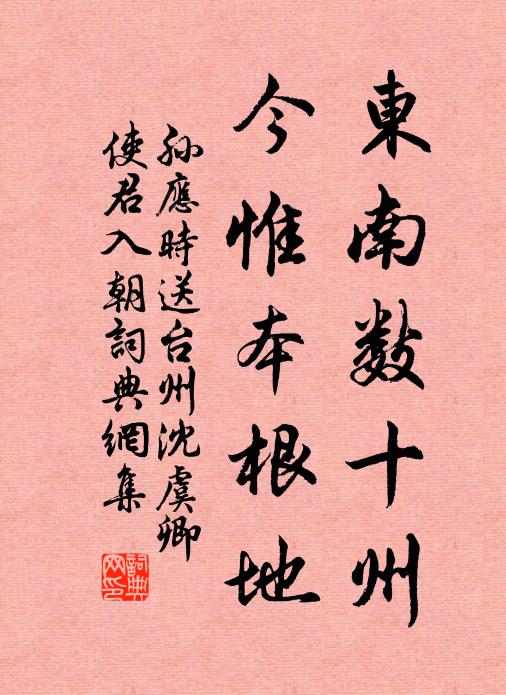 東南数十州
今惟本根地
孫應時送台州沈虞卿
使君入朝詞典網集
詞典
网印